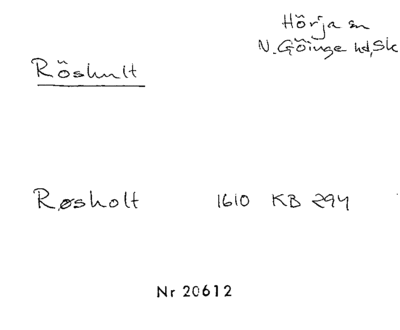 Hörja sn
N. Göinge hd, Sk
Röshult
Røsholt 1610 KB 294
Nr 20612